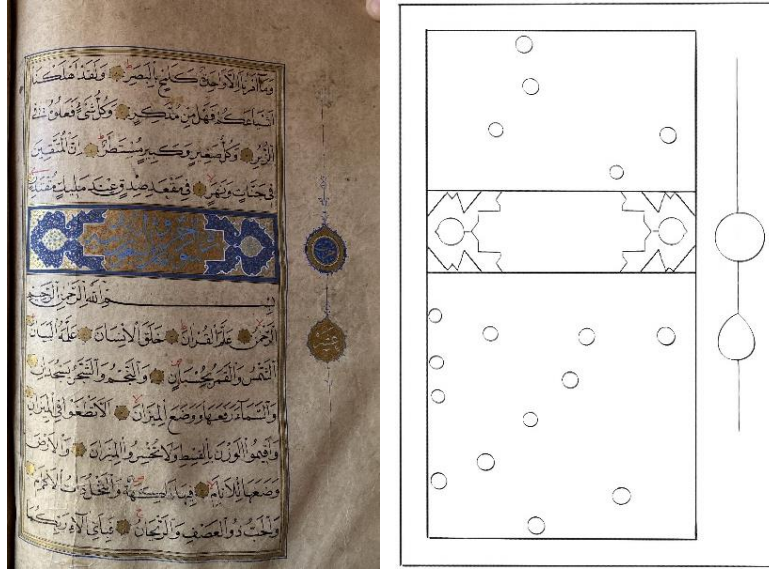 وَمَا أَمْرُنَا إِلَّا وَاحِدَةٌ كَلَمْحٍ بِالْبَصَرِ وَلَقَدْ أَهْلَكْنَا
أَشْيَاعَكُمْ فَهَلْ مِنْ مُدَّكِرٍ وَكُلُّ شَيْءٍ فَعَلُوهُ فِي
الزُّبُرِ وَكُلُّ صَغِيرٍ وَكَبِيرٍ مُسْتَطَرٌ إِنَّ الْمُتَّقِينَ
فِي جَنَّاتٍ وَنَهَرٍ فِي مَقْعَدِ صِدْقٍ عِنْدَ مَلِيكٍ مُقْتَدِرٍ
بِسْمِ اللَّهِ الرَّحْمَنِ الرَّحِيمِ
الرَّحْمَنُ عَلَّمَ الْقُرْآنَ خَلَقَ الْإِنْسَانَ عَلَّمَهُ الْبَيَانَ
الشَّمْسُ وَالْقَمَرُ بِحُسْبَانٍ وَالنَّجْمُ وَالشَّجَرُ يَسْجُدَانِ
وَالسَّمَاءَ رَفَعَهَا وَوَضَعَ الْمِيزَانَ أَلَّا تَطْغَوْا فِي الْمِيزَانِ
وَأَقِيمُوا الْوَزْنَ بِالْقِسْطِ وَلَا تُخْسِرُوا الْمِيزَانَ وَالْأَرْضَ
وَضَعَهَا لِلْأَنَامِ فِيهَا فَاكِهَةٌ وَالنَّخْلُ ذَاتُ الْأَكْمَامِ
وَالْحَبُّ ذُو الْعَصْفِ وَالرَّيْحَانُ فَبِأَيِّ آلَاءِ رَبِّكُمَا